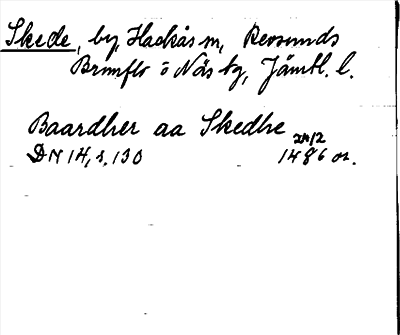 Skede, by, Hackås sn, Revsunds
Brunflo o Näs tg, Jämtl. l.
Baardher aa Skedhe
24/2
DN 14, s. 130 1486 or.